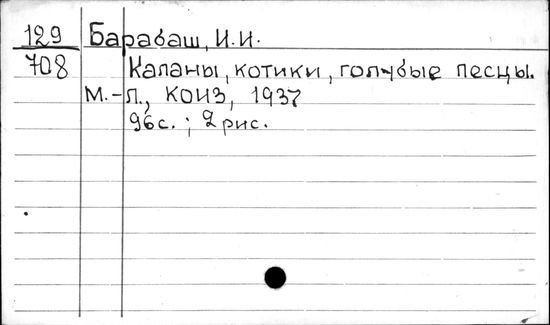 129 Барабаш, И.И.
708 Каланы, котики, голубые песцы.
М.-Л., КОИЗ, 1937
96с.; 2 рис.